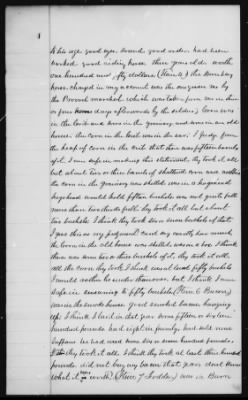 his age good eyes sound, good rider, had been
worked good riding horse three years old worth
one hundred and fifty dollars (Item 5) The Bombay
horse charged in my account was the one given me by
the Provost marshal which was taken from me in three
or four days afterwards by the soldiers, Corn was
in the loft and some in the granary and some in an old
house the corn in the loft was in the ear. I judge from
the heap of corn in the crib that there was fifteen barrels
of it. I am safe in making this statement, they took it all
but about two or three barrels of shattered corn and
the corn in the granary was shelled was in a hogshead
hogshead would hold fifteen bushels was not quite full
more than two thirds full they took it all but about
two bushels. I think they took ten or more bushels of that
I give this as my judgment cant say exactly how much
the corn in the old house was shelled was in a box I think
there was some two or three bushels of it. they took it all,
all the corn they took I think would equal fifty bushels
I would rather be under than over, but I think I am
safe in swearing to fifty bushels (Item 6 Bacon)
was in the smoke house good smoked bacon hanging
up. I think I had in that year some fifteen or sixteen
hundred pounds had eight in family, had sold none
Suppose we had used some six or seven hundred pounds.
I think they took it all I think they took at least three hundred
pounds did not buy any bacon that year dont know
what it was worth (Item 7 Fodder) was in Barn